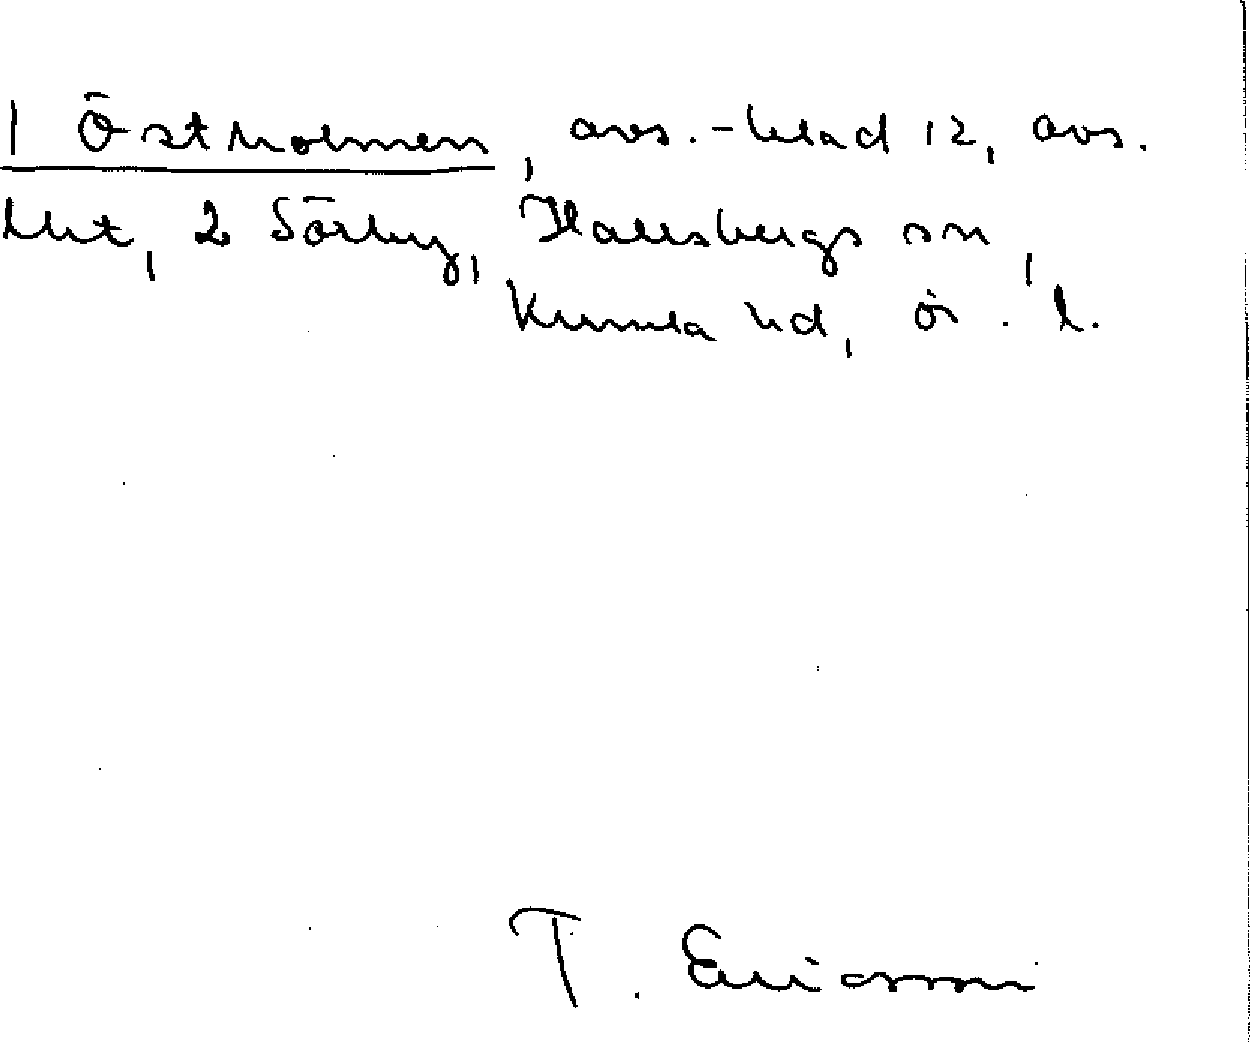 1 Östholmen, avs.-blad 12, avs.
lht, 2 Sörby, Hallsbergs sn,
Kumla hd, ör. l.
T. Ericsson